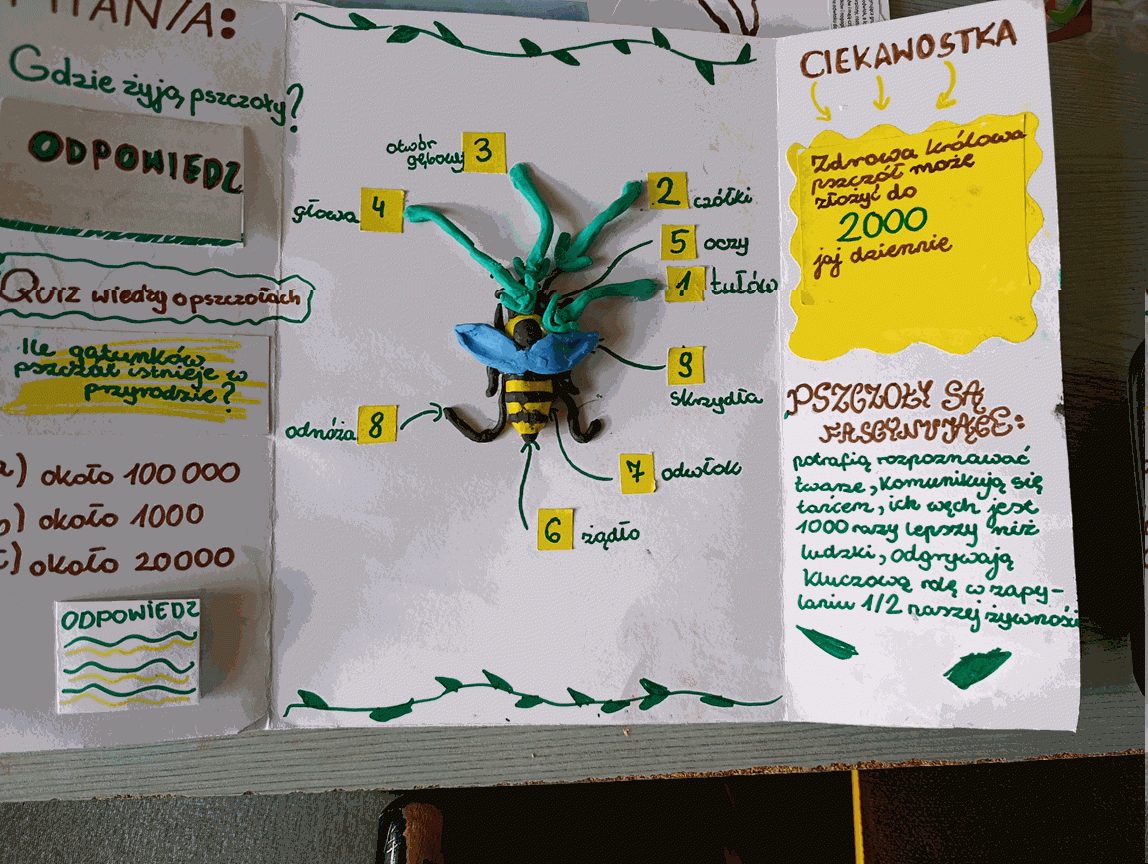 PYTANIA:
Gdzie żyją pszczoły?
ODPOWIEDZ
Quiz wiedzy o pszczołach
Ile gatunków
pszczół istnieje w
przyrodzie?
a) około 100 000
b) około 1000
c) około 20000
ODPOWIEDZ
otwór
gębowy 3
głowa 4
2 czółki
5 oczy
1 tułów
9
skrzydła
odnóża 8
7 odwłok
6 żądło
CIEKAWOSTKA
Zdrowa królowa
pszczół może
złożyć do
2000
jaj dziennie
PSZCZOŁY SĄ
FASCYNUJĄCE:
potrafią rozpoznawać
twarze, komunikują się
tańcem, ich węch jest
1000 razy lepszy niż
ludzki, odgrywają
kluczową rolę w zapy-
laniu 1/2 naszej żywności